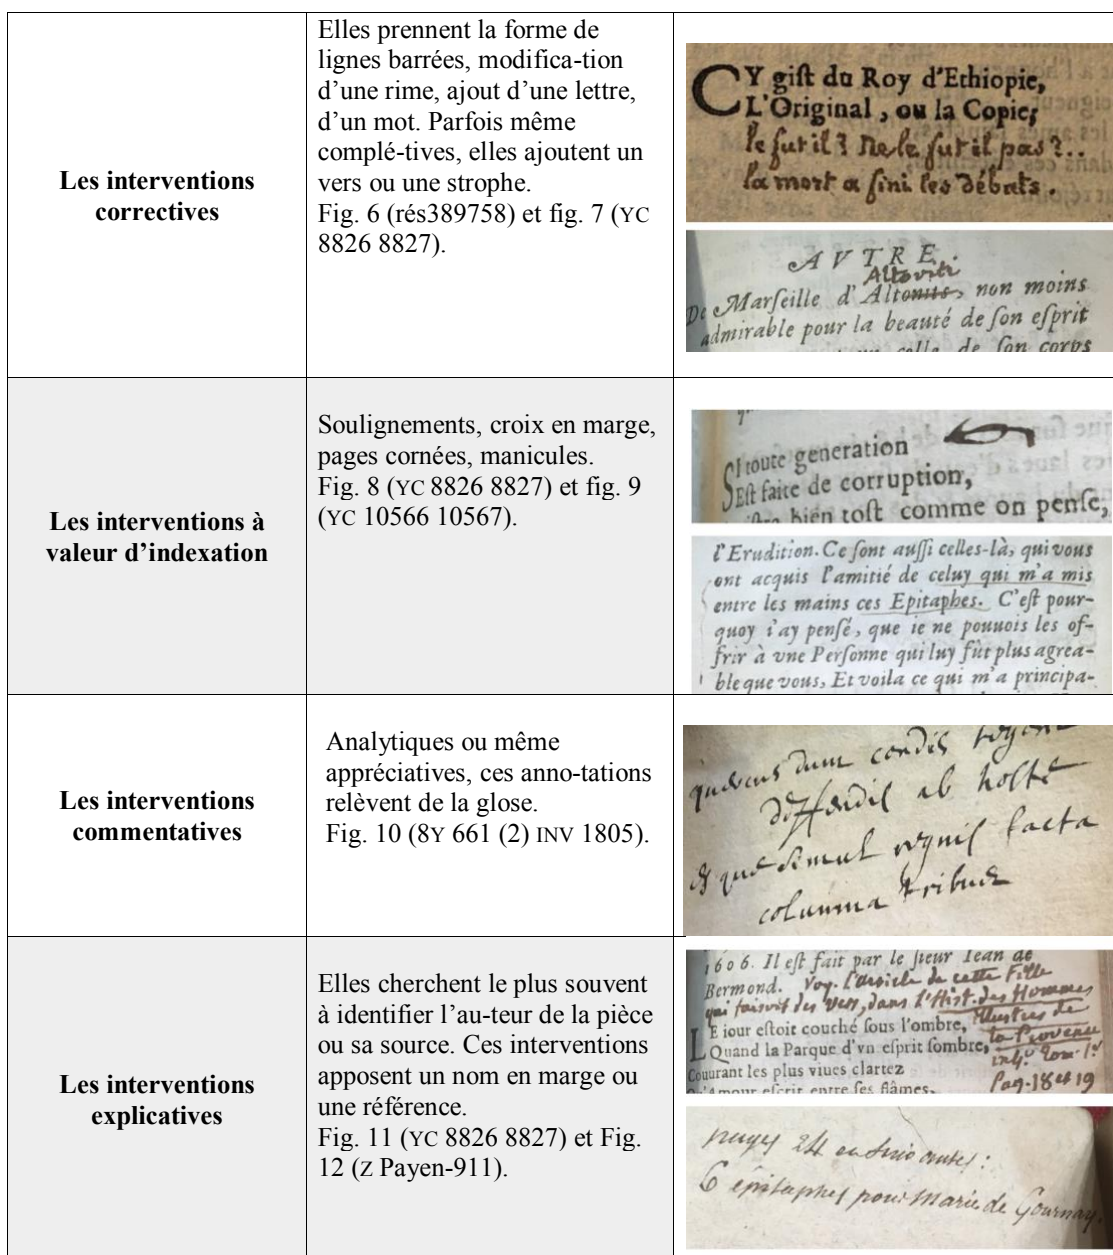 Les interventions
correctives
Elles prennent la forme de
lignes barrées, modifica-tion
d'une rime, ajout d'une lettre,
d'un mot. Parfois même
complé-tives, elles ajoutent un
vers ou une strophe.
Fig. 6 (rés389758) et fig. 7 (YC
8826 8827).
CY giſt du Roy d'Ethiopie,
L'Original, ou la Copie;
le fut il? Ne le fut il pas?..
la mort a fini les débats.
AVTRE.
Altoviti
De Marſeille d'Altonits, non moins
admirable pour la beauté de ſon eſprit
celle de ſon corps
Les interventions à
valeur d'indexation
Soulignements, croix en marge,
pages cornées, manicules.
Fig. 8 (YC 8826 8827) et fig. 9
(YC 10566 10567).
SI toute generation
Eſt faite de corruption,
bien toſt comme on penſe,
l'Erudition. Ce ſont auſſi celles-là, qui vous
ont acquis l'amitié de celuy qui m'a mis
entre les mains ces Epitaphes. C'eſt pour-
quoy i'ay penſé, que ie ne pouuois les of-
frir à vne Perſonne qui luy fût plus agrea-
ble que vous, Et voila ce qui m'a principa-
Les interventions
commentatives
Analytiques ou même
appréciatives, ces anno-tations
relèvent de la glose.
Fig. 10 (8Y 661 (2) INV 1805).
dum condis
ab hoste
simul regnis facta
columna
Les interventions
explicatives
Elles cherchent le plus souvent
à identifier l'au-teur de la pièce
ou sa source. Ces interventions
apposent un nom en marge ou
une référence.
Fig. 11 (YC 8826 8827) et Fig.
12 (Z Payen-911).
1606. Il eſt fait par le ſieur Iean de
Bermond. Voy. l'article de cette Fille
qui faisoit des vers, dans l'Hist. des Hommes
Illustres de
LE iour eſtoit couché ſous l'ombre, la Provence
Quand la Parque d'vn eſprit ſombre, Tom. 1er
Couurant les plus viues clartez
Pag. 18 et 19
Qu'Amour eſcrit entre ſes flâmes,
pages 24 et suivantes:
6 épitaphes pour Marie de Gournay.